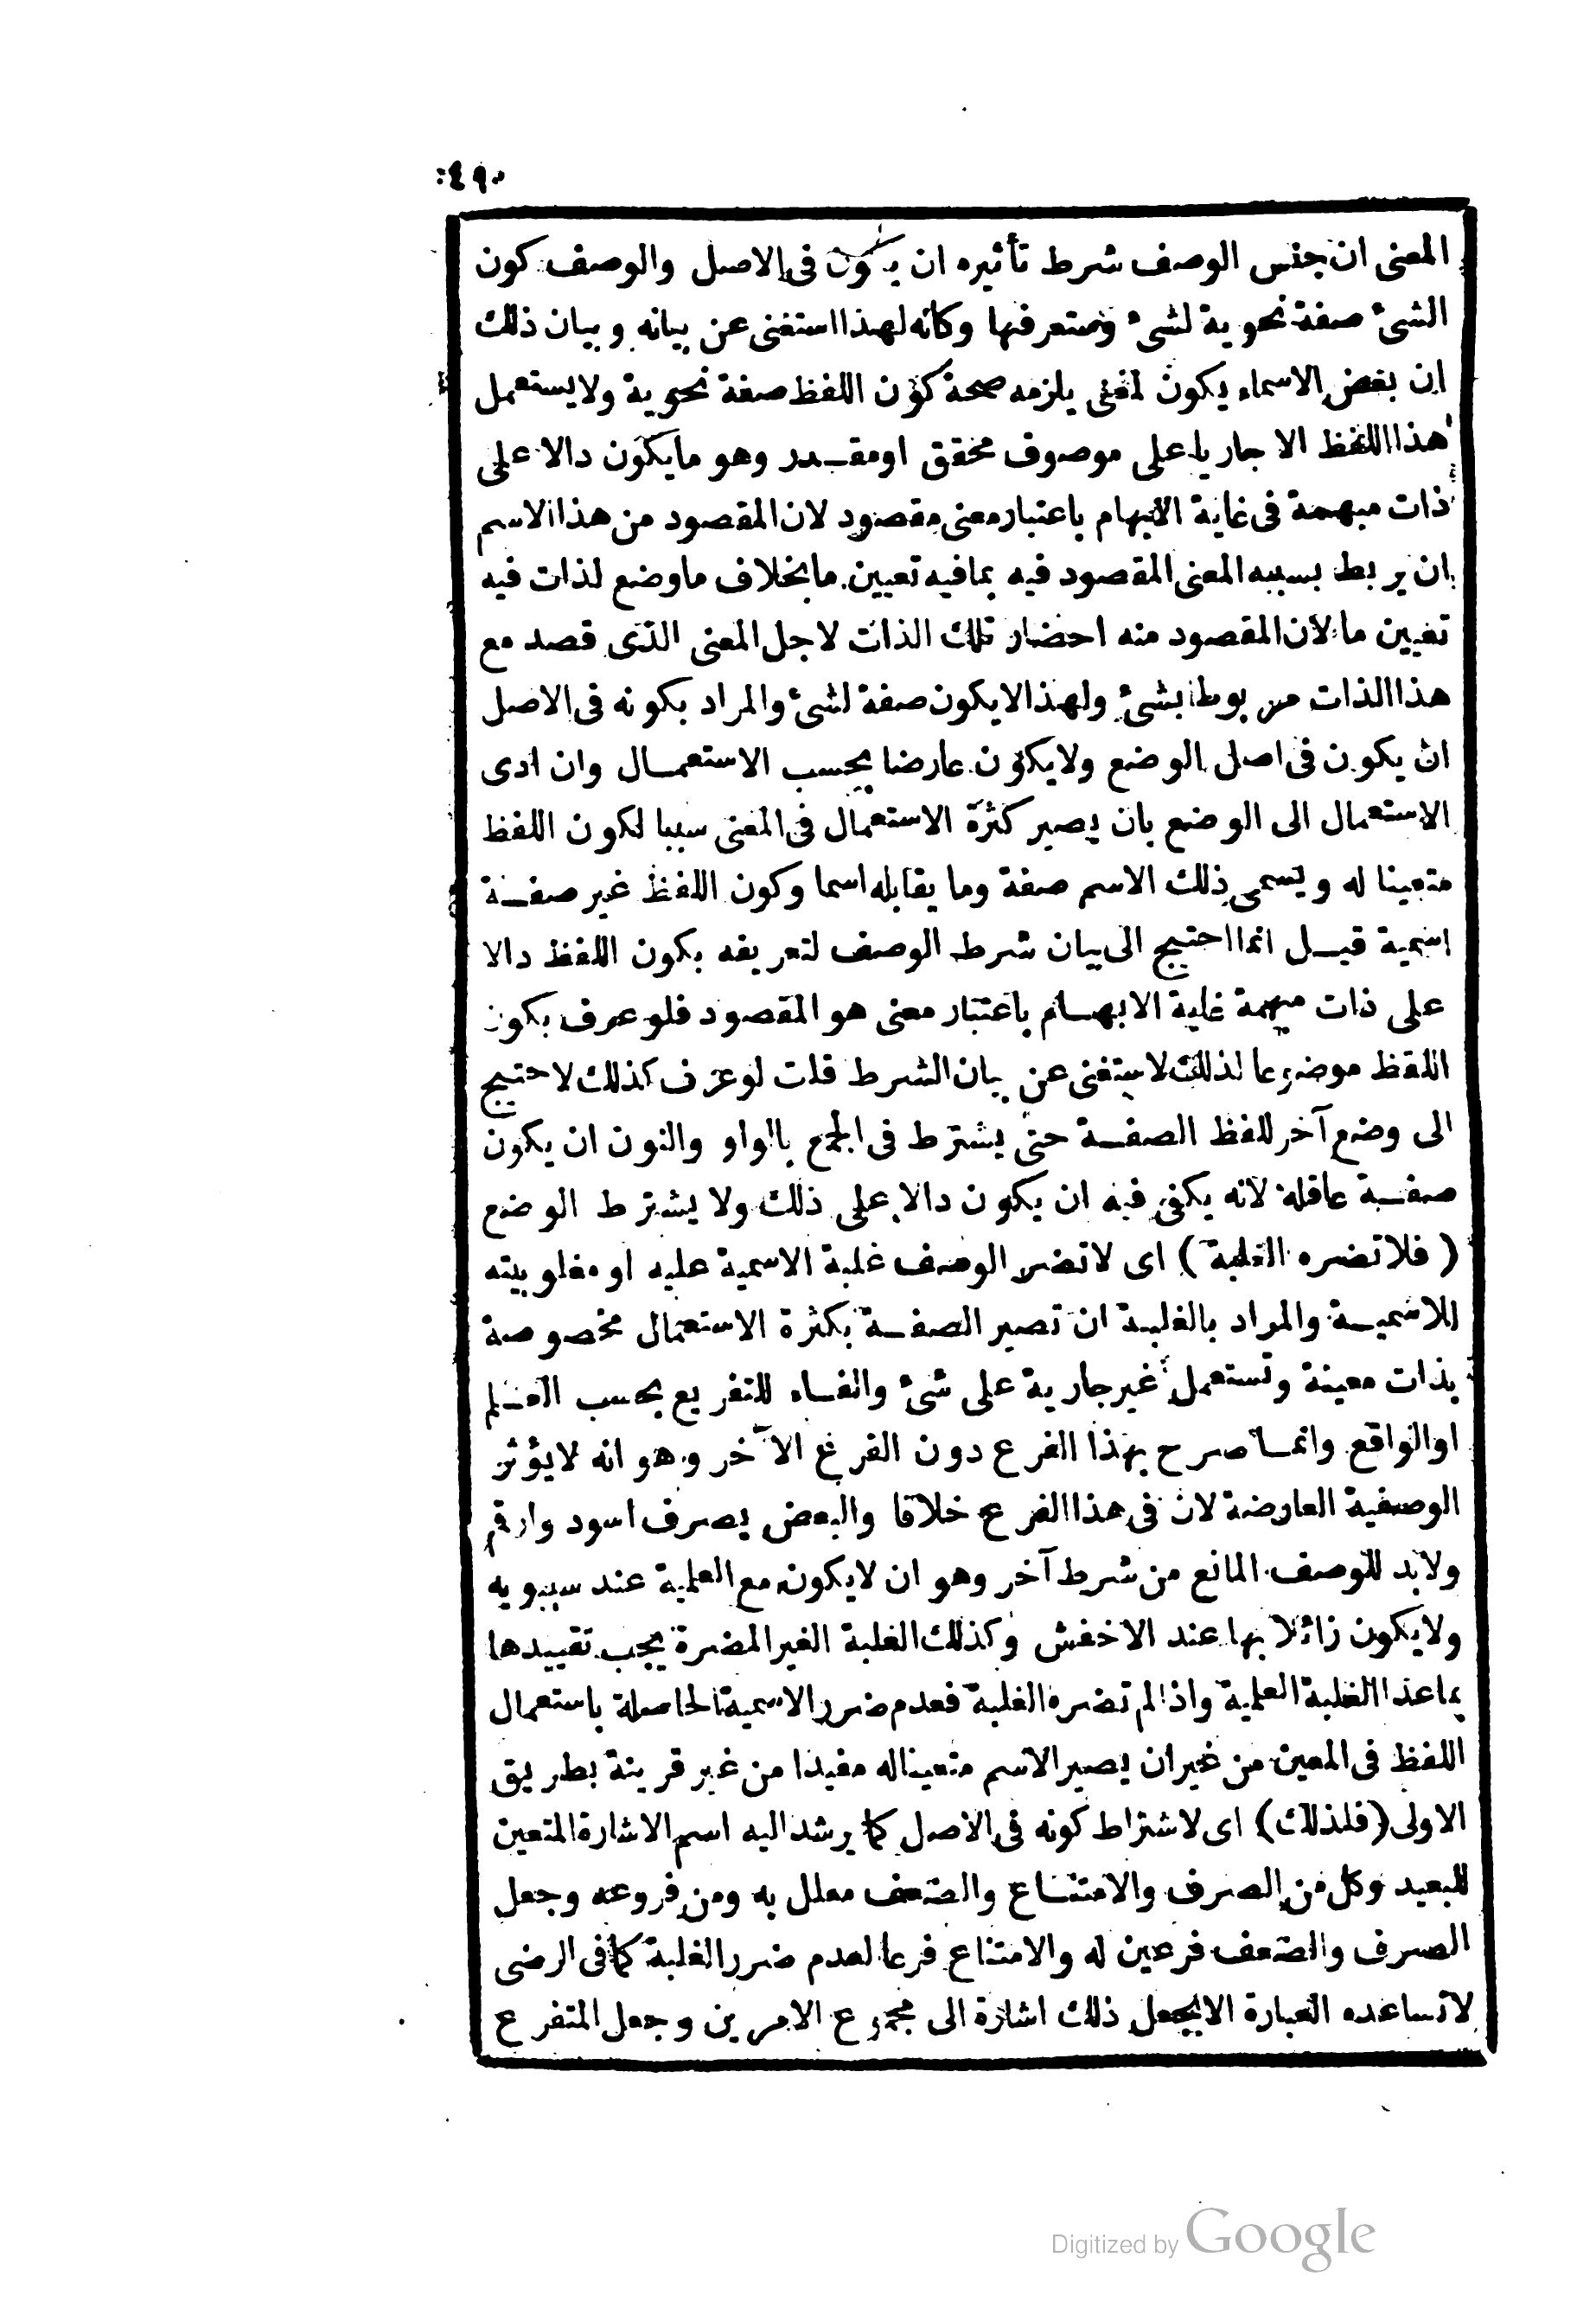 ٤٩٠
المعنى ان جنس الوصف شرط تأثيره ان يكون فى الاصل والوصف كون
الشئ صفة نحوية لشئ وستعرفها وكانه لهذا استغنى عن بيانه وبيان ذلك
ان بعض الاسماء يكون لمعنى يلزمه صحة كون اللفظ صفة نحوية ولا يستعمل
هذا اللفظ الا جاريا على موصوف محقق او مقدر وهو ما يكون دالا على
ذات مبهمة فى غاية الابهام باعتبار معنى مقصود لان المقصود من هذا الاسم
ان يربط بسببه المعنى المقصود فيه بما فيه تعيين ما بخلاف ما وضع لذات فيه
تعيين ما لان المقصود منه احضار تلك الذات لاجل المعنى الذى قصد مع
هذا الذات مربوطا بشئ ولهذا لا يكون صفة لشئ والمراد بكونه فى الاصل
ان يكون فى اصل الوضع ولا يكون عارضا بحسب الاستعمال وان ادى
الاستعمال الى الوضع بان يصير كثرة الاستعمال فى المعنى سببا لكون اللفظ
متعينا له ويسمى ذلك الاسم صفة وما يقابله اسما وكون اللفظ غير صفة
اسمية قيل انما احتيج الى بيان شرط الوصف لتعريفه بكون اللفظ دالا
على ذات مبهمة غاية الابهام باعتبار معنى هو المقصود فلو عرف بكون
اللفظ موضوعا لذلك لاستغنى عن بيان الشرط قلت لو عرف كذلك لاحتيج
الى وضع آخر للفظ الصفة حتى يشترط فى الجمع بالواو والنون ان يكون
صفة عاقلة لانه يكفى فيه ان يكون دالا على ذلك ولا يشترط الوضع
( فلا تضره الغلبة ) اى لا تضر الوصف غلبة الاسمية عليه او مغلوبيته
للاسمية والمراد بالغلبة ان تصير الصفة بكثرة الاستعمال مخصوصة
بذات معينة وتستعمل غير جارية على شئ والفاء للتفريع بحسب العلم
او الواقع وانما صرح بهذا الفرع دون الفرع الآخر وهو انه لا يؤثر
الوصفية العارضة لان فى هذا الفرع خلافا والبعض يصرف اسود وارقم
ولا بد للوصف المانع من شرط آخر وهو ان لا يكون مع العلمية عند سيبويه
ولا يكون زائلا بها عند الاخفش وكذلك الغلبة الغير المضرة يجب تقييدها
بما عدا الغلبة العلمية واذا لم تضره الغلبة فعدم ضرر الاسمية الحاصلة باستعمال
اللفظ فى المعين من غير ان يصير الاسم متعينا له مفيدا من غير قرينة بطريق
الاولى ( فلذلك ) اى لاشتراط كونه فى الاصل كما يرشد اليه اسم الاشارة المتعين
للبعيد وكل من الصرف والامتناع والضعف معلل به ومن فروعه وجعل
الصرف والضعف فرعين له والامتناع فرعا لعدم ضرر الغلبة كما فى الرضى
لا تساعده العبارة الا بجعل ذلك اشارة الى مجموع الامرين وجعل المتفرع
Digitized by Google